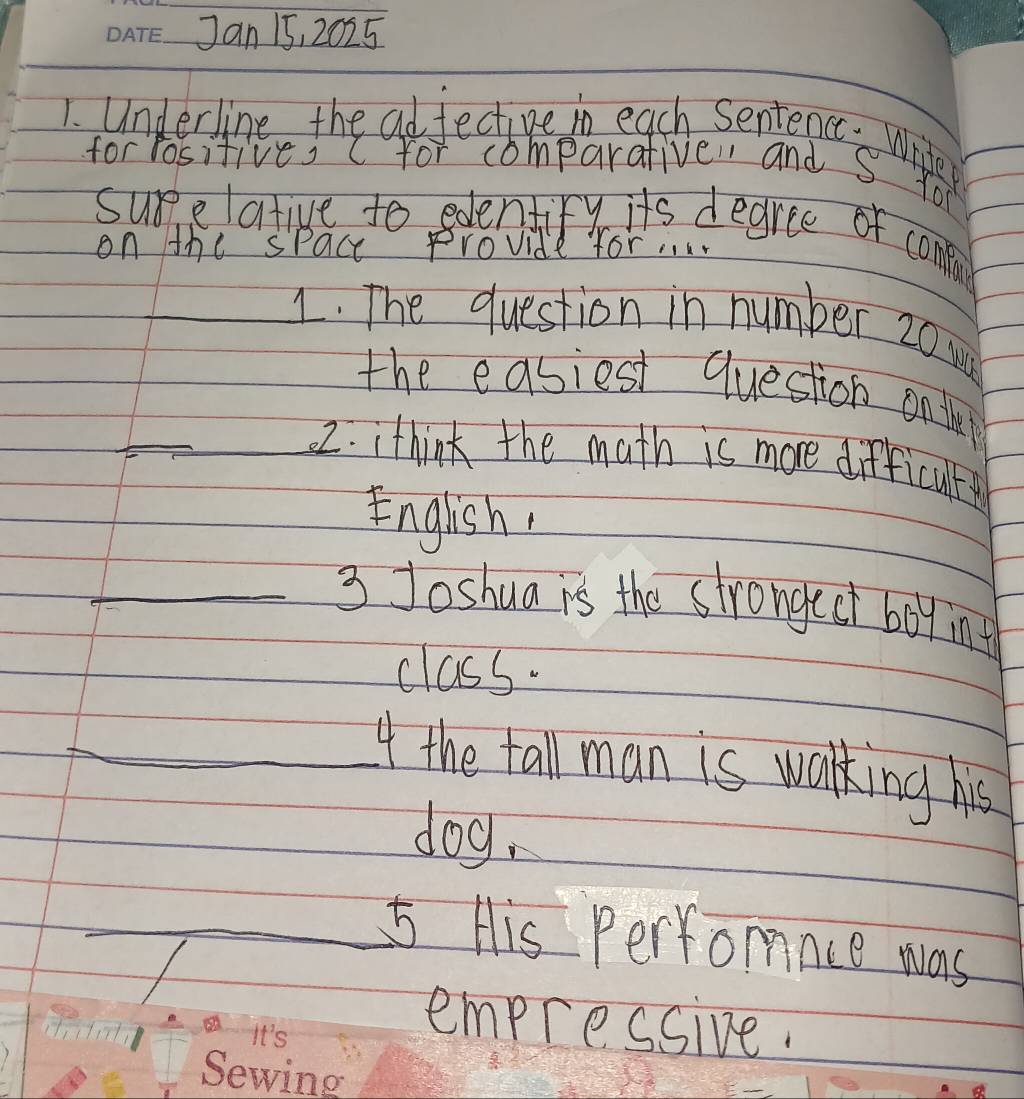 DATE Jan 15, 2025
1. Underline the adjective in each Sentence. Write P
for Positive, C for comparative,, and S for
superelative to edentify its degree of
on the space Provide for ....
1. The question in number 20 was
the easiest question on the
2. i think the math is more difficult
English.
3 Joshua is the strongest boy in
class.
4 the tall man is walking his
dog.
5 His Perfomnce was
empressive.
It's
Sewing